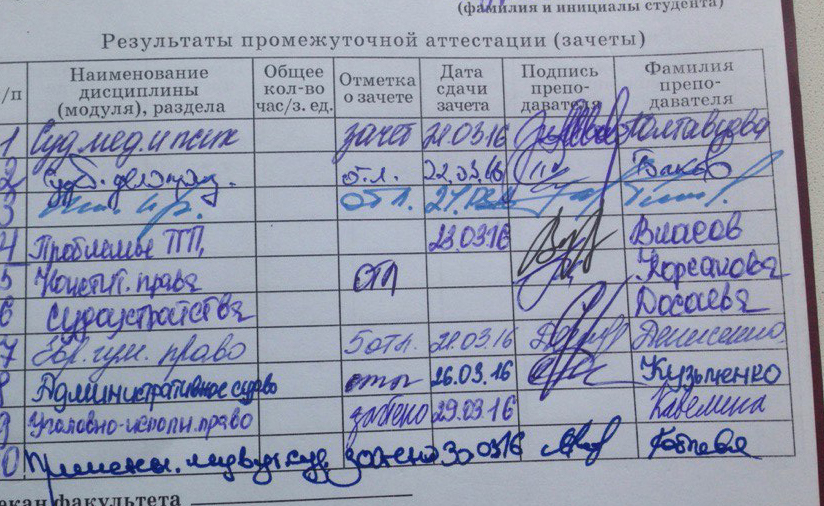 (фамилия и инициалы студента)
Результаты промежуточной аттестации (зачеты)
/п Наименование дисциплины (модуля), раздела Общее кол-во час/з. ед. Отметка о зачете Дата сдачи зачета Подпись препо-давателя Фамилия препо-давателя
1 Суд. мед. и псих зачет 21.03.16 Полтавцова
2 отл. 22.03.16
3 отл.
4 Проблемы ГП, 23.03.16 Власов
5 Конст. права отл Корсакова
6 Судоустройства Досаева
7 гум. право 5 отл. 21.03.16 Денисенко
8 Административное судво отл 26.03.16 Кузьменко
9 Уголовно-исполн. право зачтено 29.03.16 Кавелина
0 зачтено 30.03.16
екан факультета